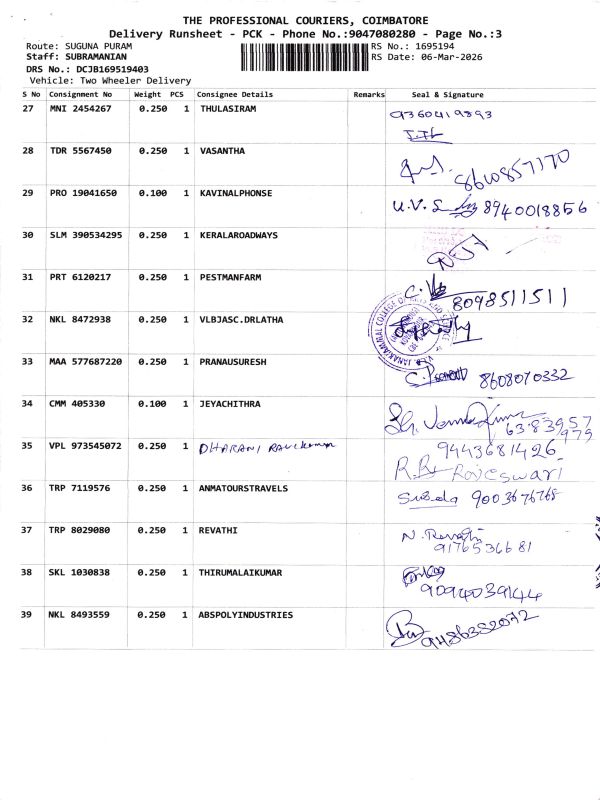 THE PROFESSIONAL COURIERS, COIMBATORE
Delivery Runsheet - PCK - Phone No.:9047080280 - Page No.:3
Route: SUGUNA PURAM
RS No.: 1695194
Staff: SUBRAMANIAN
RS Date: 06-Mar-2026
DRS No.: DCJB169519403
Vehicle: Two Wheeler Delivery
S No Consignment No Weight PCS Consignee Details Remarks Seal & Signature
27 MNI 2454267 0.250 1 THULASIRAM 9360419893
28 TDR 5567450 0.250 1 VASANTHA 8610857170
29 PRO 19041650 0.100 1 KAVINALPHONSE U.V. 8940018856
30 SLM 390534295 0.250 1 KERALAROADWAYS
31 PRT 6120217 0.250 1 PESTMANFARM 8098511511
32 NKL 8472938 0.250 1 VLBJASC.DRLATHA
33 MAA 577687220 0.250 1 PRANAUSURESH 8608070332
34 CMM 405330 0.100 1 JEYACHITHRA
6383957
979
35 VPL 973545072 0.250 1 DHARANI 9443681426
Rajeswari
36 TRP 7119576 0.250 1 ANMATOURSTRAVELS 9003676768
37 TRP 8029080 0.250 1 REVATHI N. Revathi
9176536681
38 SKL 1030838 0.250 1 THIRUMALAIKUMAR
9094039144
39 NKL 8493559 0.250 1 ABSPOLYINDUSTRIES 9486352072